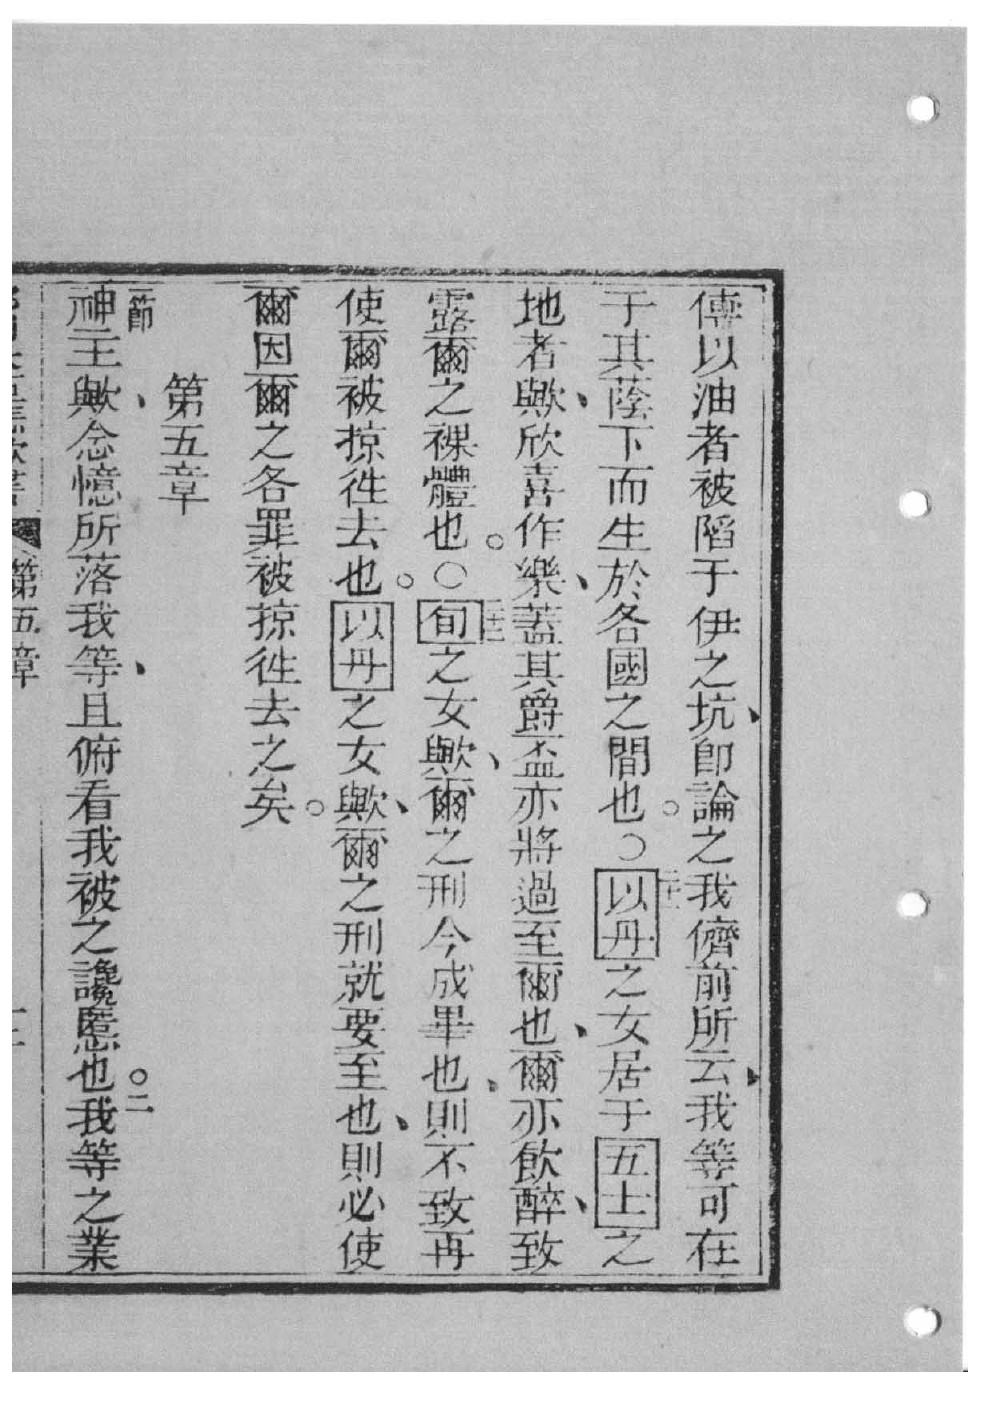 傅以油者被陷于伊之坑、卽論之我儕前所云、我等可在
于其蔭下而生於各國之間也。○二十一以丹之女居于五士之
地者歟、欣喜作樂、蓋其爵盃亦將過至爾也、爾亦飲醉、致
露爾之裸體也。○二十二旬之女歟、爾之刑今成畢也、則不致再
使爾被掠徃去也。以丹之女歟、爾之刑就要至也、則必使
爾因爾之各罪被掠徃去之矣。
第五章
一節神王歟、念憶所落我等、且俯看我被之讒慝也。二我等之業
第五章